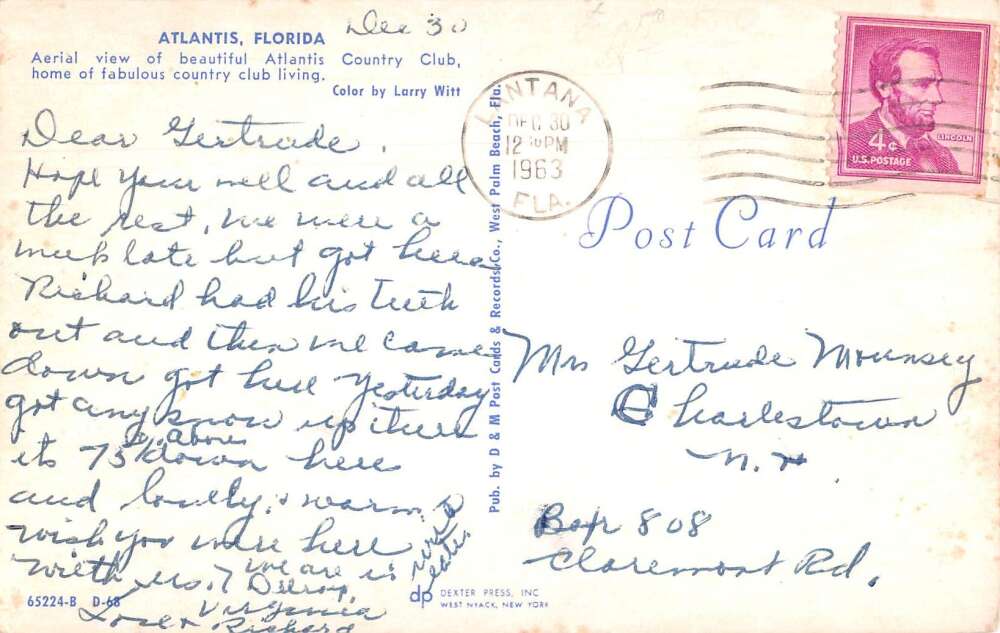 Dec 30
ATLANTIS, FLORIDA
Aerial view of beautiful Atlantis Country Club,
home of fabulous country club living.
Color by Larry Witt
Dear Gertrude,
Hope your well and all
the rest, we were a
week late but got here
Richard had his teeth
out and then we came
down got here yesterday
got any snow up there
its 75 above down here
and lovely & warm,
wish you were here
with us. we are in
Love Virginia
& Richard
65224-B D-68
Pub. by D & M Post Cards & Records Co., West Palm Beach, Fla.
dp DEXTER PRESS, INC
WEST NYACK, NEW YORK
LANTANA
DEC 30
12 PM
1963
FLA.
4¢
LINCOLN
U.S. POSTAGE
Post Card
Mrs Gertrude Mounsey
Charlestown
N. H
Box 808
Claremont Rd.